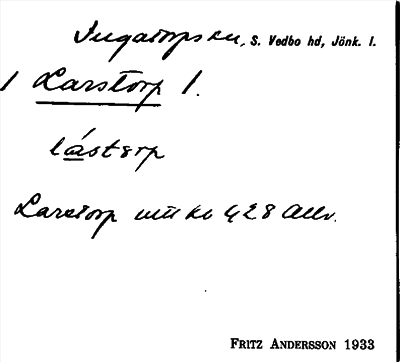 Ingatorps sn, S. Vedbo hd, Jönk. l.
1 Larstorp 1.
lástorp
Larstorp mtl kr 428 Allv.
FRITZ ANDERSSON 1933